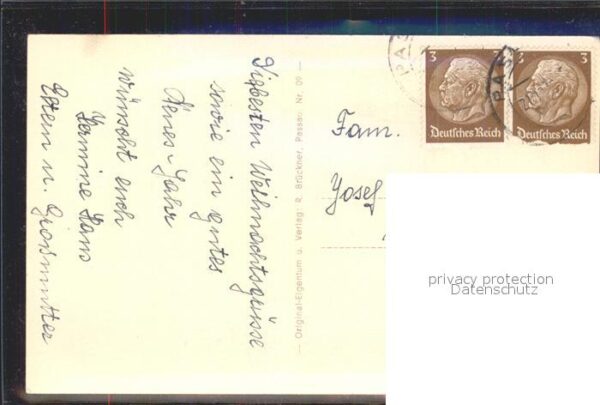 Die besten Weihnachtsgrüsse
sowie ein gutes
Neues-Jahr
wünscht euch
Hans
Eltern u. Grosmutter
— Original-Eigentum u. Verlag R. Brückner, Passau Nr. 09 —
3
Deutsches Reich
3
Deutsches Reich
PAS
PASS
Fam.
Josef
privacy protection
Datenschutz